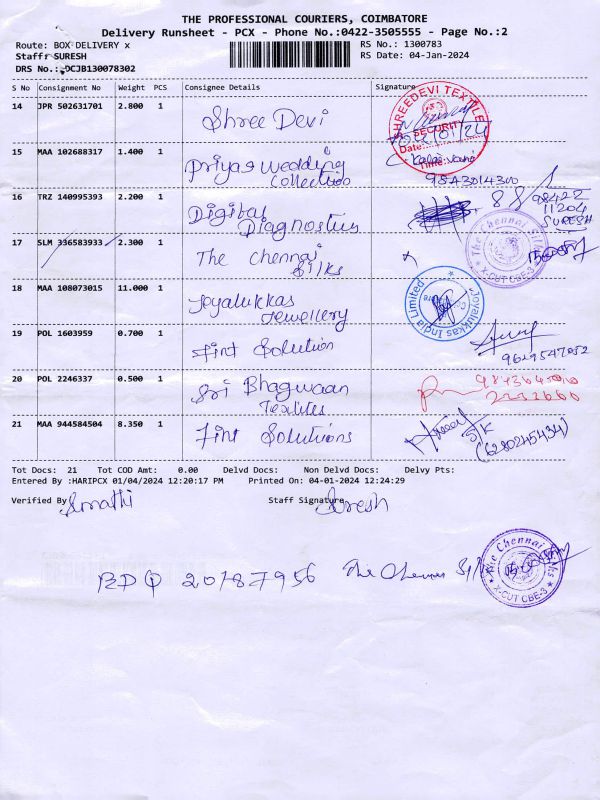 THE PROFESSIONAL COURIERS, COIMBATORE
Delivery Runsheet - PCX - Phone No.:0422-3505555 - Page No.:2
Route: BOX DELIVERY x
RS No.: 1300783
Staff: SURESH
RS Date: 04-Jan-2024
DRS No.: DCJB130078302
S No Consignment No Weight PCS Consignee Details Signature
14 JPR 502631701 2.800 1 Shree Devi
SHREEDEVI TEXTILE
SECURITY
Date:
Time:
15 MAA 102688317 1.400 1 Priyas wedding
collection
Kalai vani
9843014300
16 TRZ 140995393 2.200 1 Digital
Diagnostus
88
98422
11204
SURESH
17 SLM 336583933 2.300 1 The Chennai
Silks
The Chennai Silks
X-CUT CBE-3
18 MAA 108073015 11.000 1 Joyalukkas
Jewellery
Joyalukkas India Limited
19 POL 1603959 0.700 1 Fint Solution
9629547052
20 POL 2246337 0.500 1 Sri Bhagwaan
Textiles
2232666
21 MAA 944584504 8.350 1 Fint Solutions
S/K
(6280245434)
Tot Docs: 21 Tot COD Amt: 0.00 Delvd Docs: Non Delvd Docs: Delvy Pts:
Entered By :HARIPCX 01/04/2024 12:20:17 PM Printed On: 04-01-2024 12:24:29
Verified By Sumathi Staff Signature Suresh
BDQ 20787956 The Chennai Silks
The Chennai Silks
X-CUT CBE-3